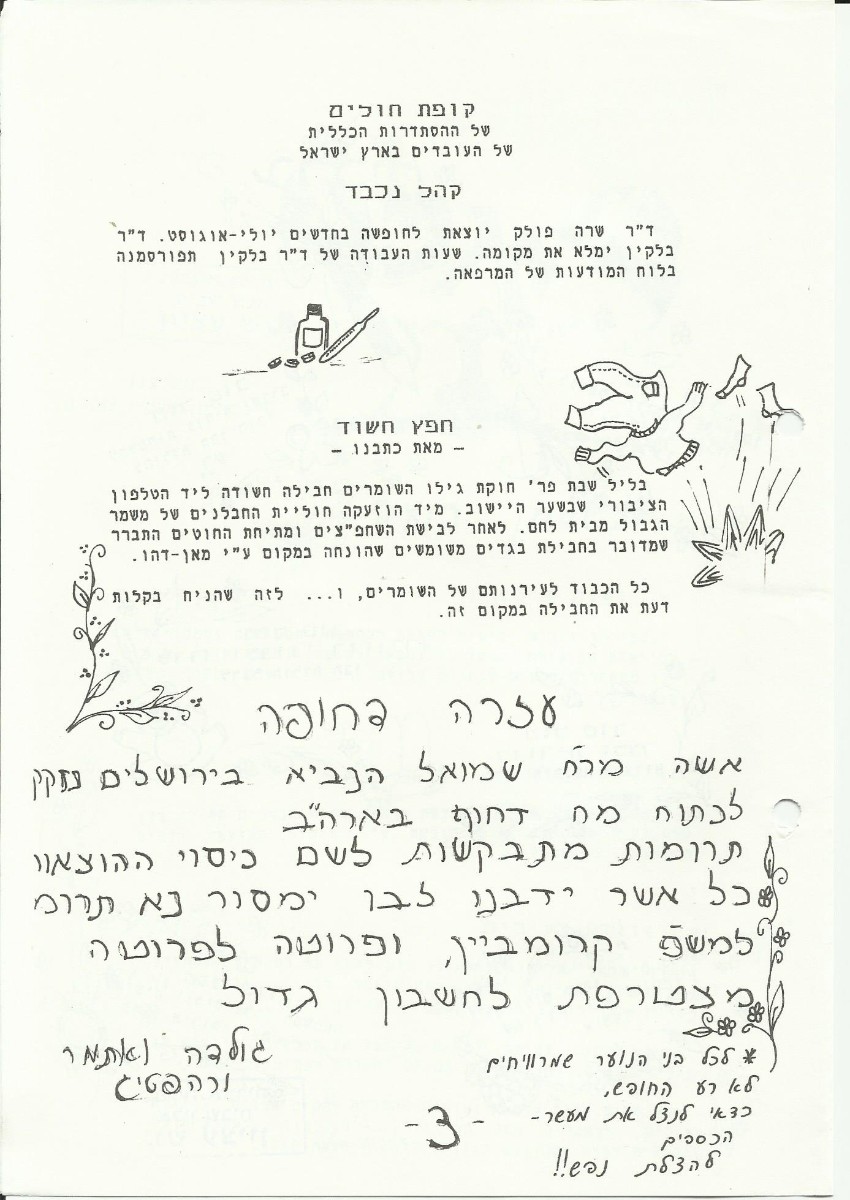 קופת חולים
של ההסתדרות הכללית
של העובדים בארץ ישראל
קהל נכבד
ד"ר שרה פולק יוצאת לחופשה בחדשים יולי-אוגוסט. ד"ר
בלקין ימלא את מקומה. שעות העבודה של ד"ר בלקין תפורסמנה
בלוח המודעות של המרפאה.
חפץ חשוד
- מאת כתבנו -
בליל שבת פר' חוקת גילו השומרים חבילה חשודה ליד הטלפון
הציבורי שבשער היישוב. מיד הוזעקה חוליית החבלנים של משמר
הגבול מבית לחם. לאחר לבישת השחפ"צים ומתיחת החוטים התברר
שמדובר בחבילת בגדים משומשים שהונחה במקום ע"י מאן-דהו.
כל הכבוד לעירנותם של השומרים, ו... לזה שהניח בקלות
דעת את החבילה במקום זה.
עזרה דחופה
אשה מרח' שמואל הנביא בירושלים נזקק
לנתוח מח דחוף בארה"ב
תרומות מתבקשות לשם כיסוי ההוצאו
כל אשר ידבנו לבו ימסור נא תרומ
למשפ' קרומביין, ופרוטה לפרוטה
מצטרפת לחשבון גדול
גולדה ואתמר
ורהפטיג
* לכל בני הנוער שמרוויחים
לא רע החופש,
כדאי לנצל את מעשר-
הכספים
להצלת נפש!!
-3-